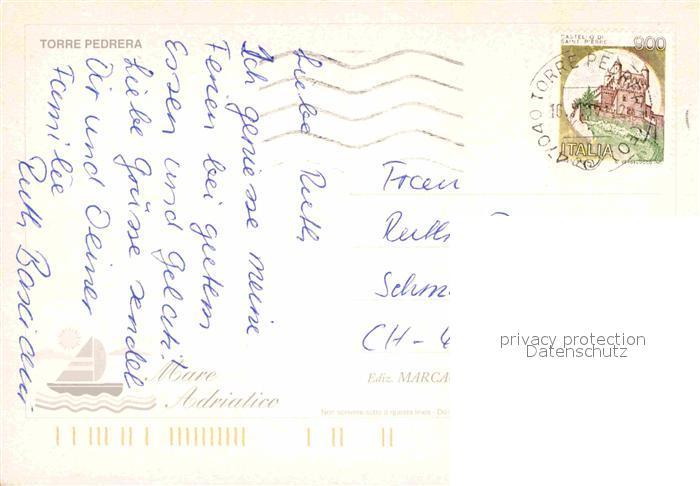 TORRE PEDRERA
Liebe Ruth
Ich geniesse meine
Ferien bei gutem
Essen und Gelati!
Liebe Grüsse sendet
Dir und Deiner
Familie
Ruth
CASTELLO DI
SAINT PIERRE
900
ITALIA
47040 TORRE PEDRERA
Frau
Ruth
CH-
Mare
Adriatico
Ediz. MARCA
Non scrivere sotto a questa linea - Do
privacy protection
Datenschutz